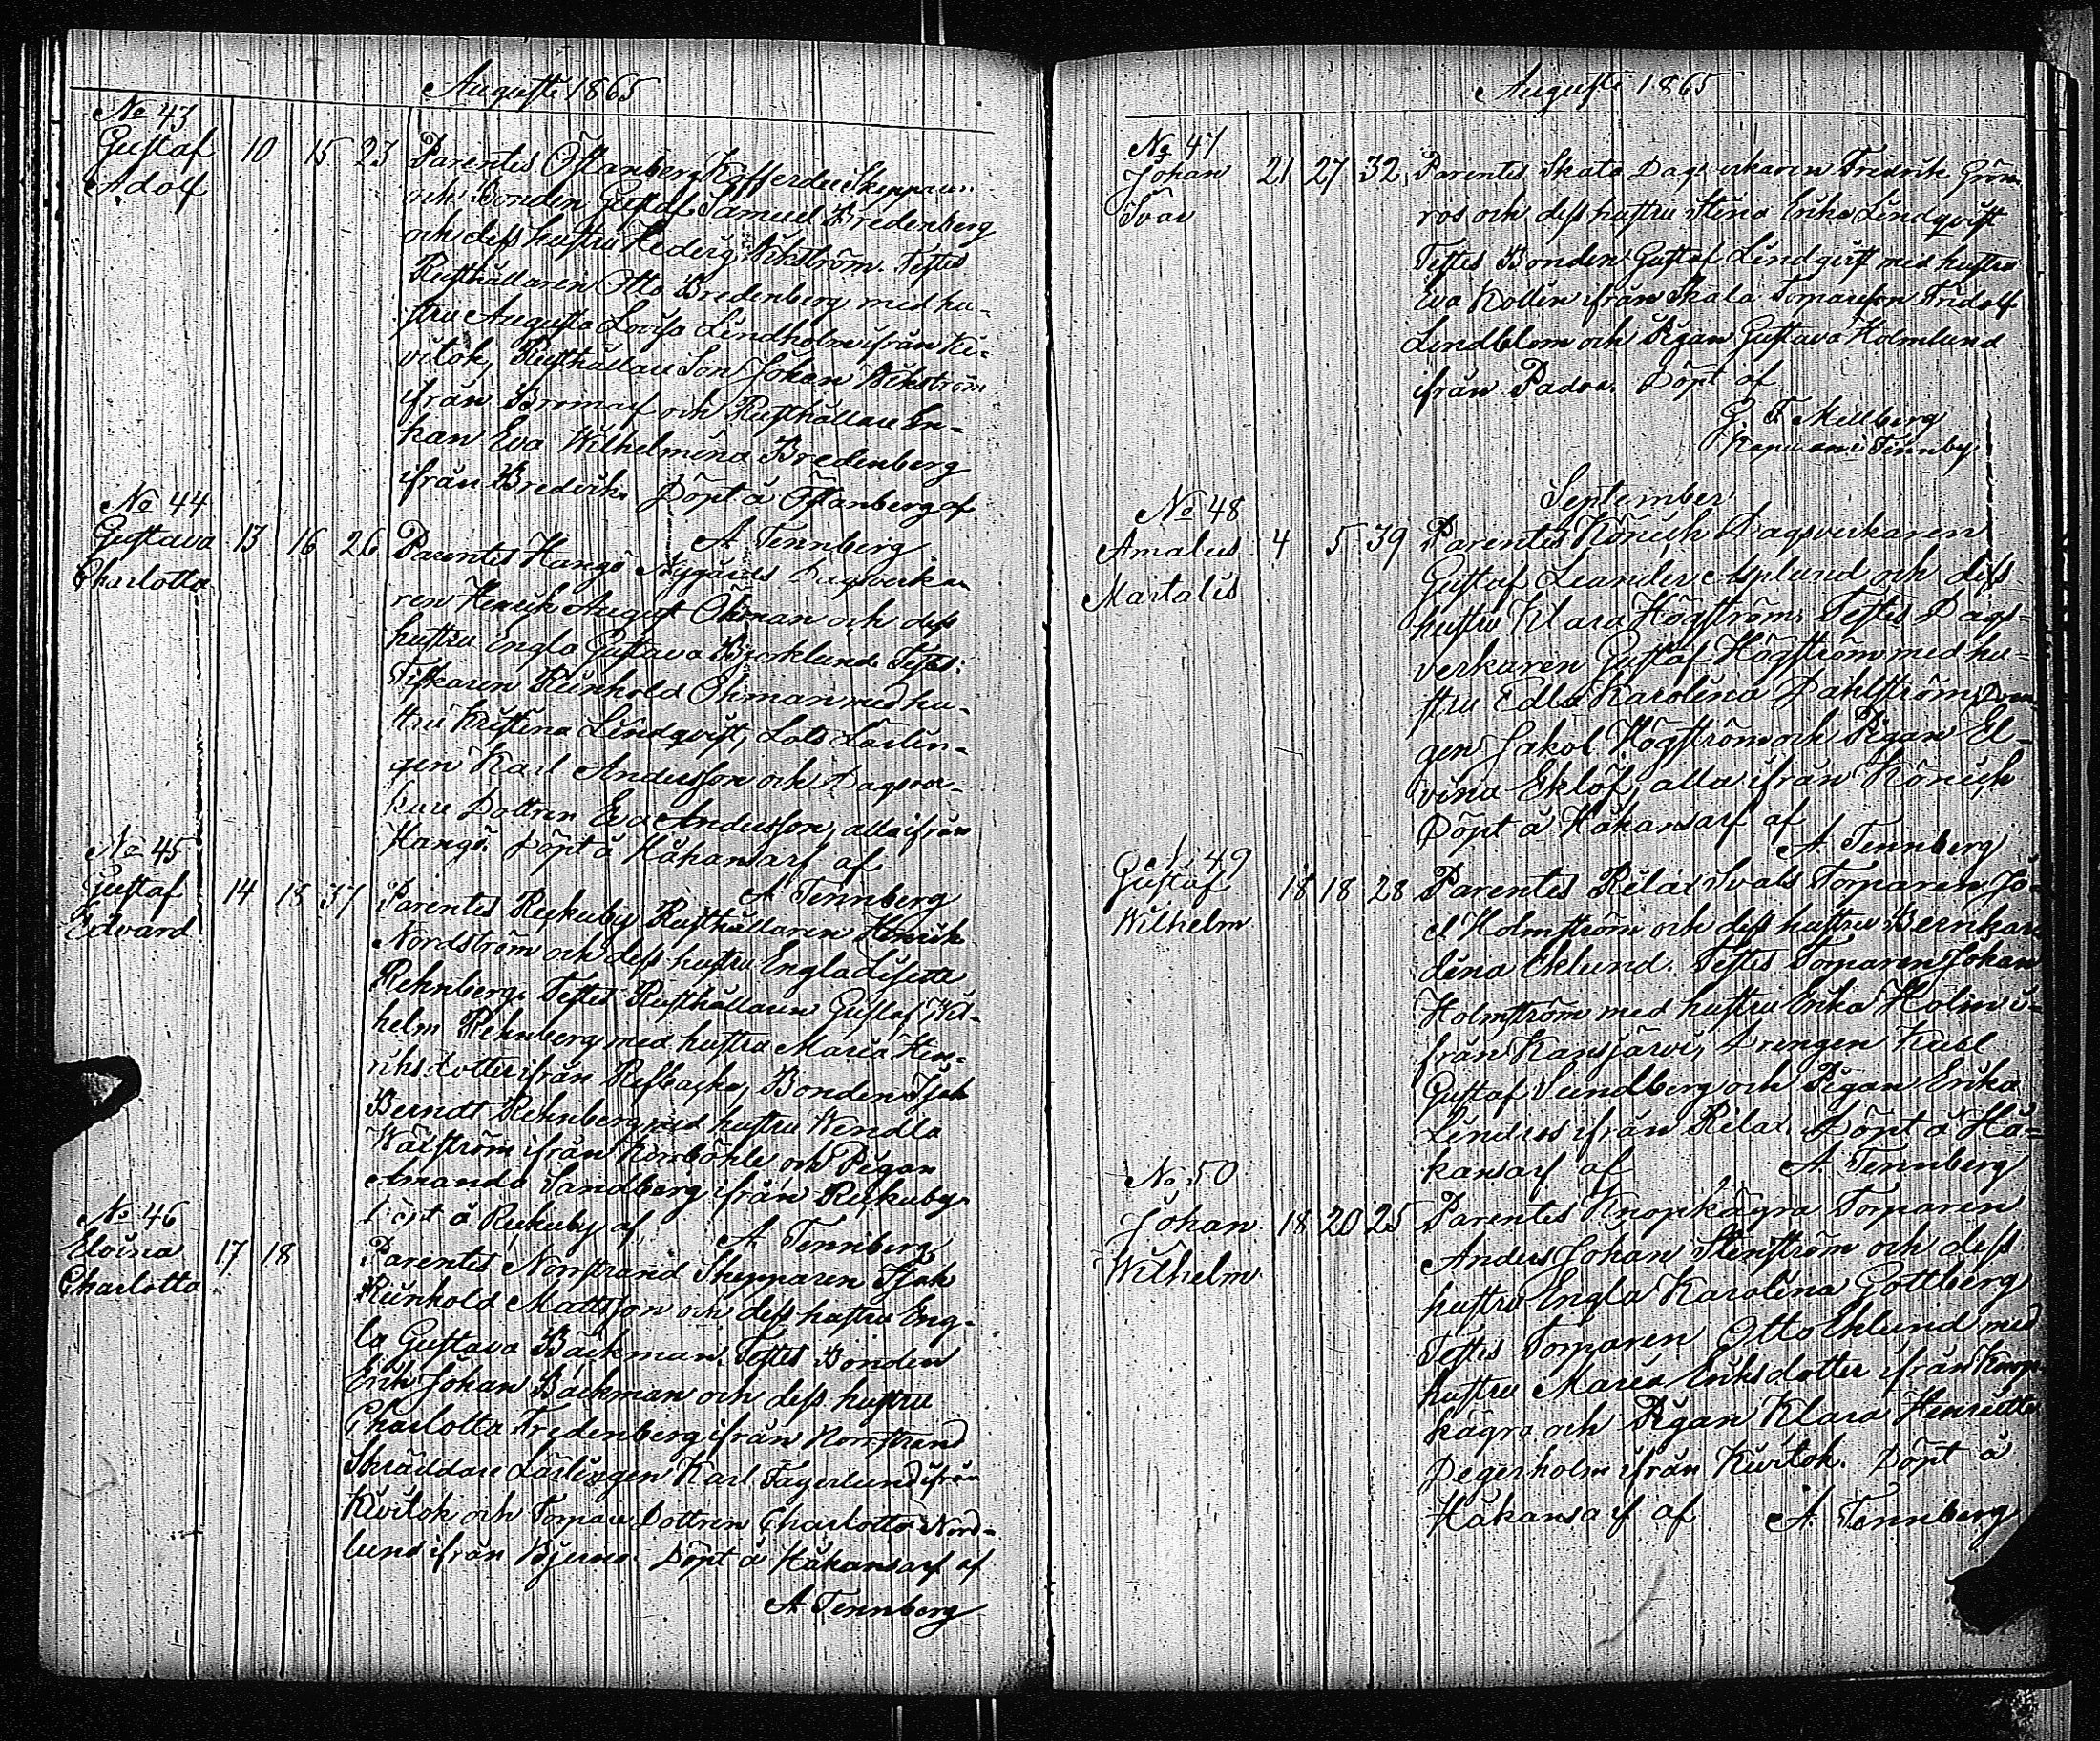 Augusti 1865
No 43
Gustaf 10 15 23 Parentes Östanberg Kofferdie Skepparen
Adolf
och Bonden Gustaf Samuel Bredenberg
och dess hustru Hedvig Wikström. Testes
Rusthållaren Otto Bredenberg med hu-
stru Augusta Lovisa Lindholm ifrån Ki-
vitok, Rusthållare Son Johan Wikström
ifrån Bromarf och Rusthållare En-
kan Eva Wilhelmina Bredenberg
ifrån Bredvik. Döpt å Östanberg af
A Tennberg
No 44
Gustava 13 16 26 Parentes Hangö Nygårds Dagsverka-
Charlotta
ren Henrik August Öhman och dess
hustru Engla Gustava Bjorklund. Testes:
Fiskaren Reinhold Öhman med hu-
stru Kristina Lindqvist, Lots Lärlin-
gen Karl Andersson och Dagsver-
kare Dottren Eva Andersson, alla ifrån
Hangö. Döpt å Håkansarf af
A Tennberg
No 45
Gustaf 14 18 37 Parentes Rekuby Rusthållaren Henrik
Edvard
Nordström och dess hustru Engla Lisette
Rehnberg. Testes Rusthållaren Gustaf Wil-
helm Rehnberg med hustru Maria Hen-
riksdotter ifrån Refbacka, Bonden Isak
Berndt Rehnberg med hustru Wendla
Wälström ifrån Korsböhle och Pigan
Amanda Sandberg ifrån Rekuby.
Döpt å Rekuby af A Tennberg
No 46
Elvina 17 18 Parentes Norrstrand Skepparen Isak
Charlotta
Reinhold Mattsson och dess hustru Eng-
la Gustava Bäckman. Testes Bonden
Erik Johan Bäckman och dess hustru
Charlotta Fredenberg ifrån Norrstrand
Skräddare Lärlingen Karl Fagerlund ifrån
Kivitok och Torpare Dottren Charlotta Nord-
lund ifrån Bjerno. Döpt å Håkansarf af
A Tennberg
Augusti 1865
No 47
Johan 21 27 32 Parentes Skata Dagsverkaren Fredrik Grön-
Ivar
ros och dess hustru Stina Erika Lindqvist
Testes Bonden Gustaf Lindqvist med hustru
Eva Kollin ifrån Skata Torpareson Fridolf
Lindblom och Pigan Gustava Holmlund
ifrån Padva. Döpt af
G. F. Mellberg
Kapellan i Tennby
September
No 48
Amalius 4 5 39 Parentes Könick Dagsverkaren
Martalis
Gustaf Leander Asplund och dess
hustru Klara Högström. Testes Dags-
verkaren Gustaf Högström med hu-
stru Edla Karolina Dahlström, Dren-
gen Jakob Högström och Pigan El-
vina Eklöf, alla ifrån Könick
Döpt å Håkansarf af
A Tennberg
No 49
Gustaf 18 18 28 Parentes Rilax Svals Torparen Jo-
Wilhelm
el Holmström och dess hustru Bernhar-
dina Eklund. Testes Torparen Johan
Holmström med hustru Erika Holm i-
från Kansjärvi, Drengen Karl
Gustaf Sundberg och Pigan Erika
Lindros ifrån Rilax. Döpt å Hå-
kansarf af A Tennberg
No 50
Johan 18 20 25 Parentes Knopkägra Torparen
Wilhelm
Anders Johan Stenström och dess
hustru Engla Karolina Gottberg
Testes Torparen Otto Eklund med
hustru Maria Eriksdotter ifrån Knop-
kägra och Pigan Klara Henriette
Degerholm ifrån Kivitok. Döpt å
Håkansarf af A. Tennberg